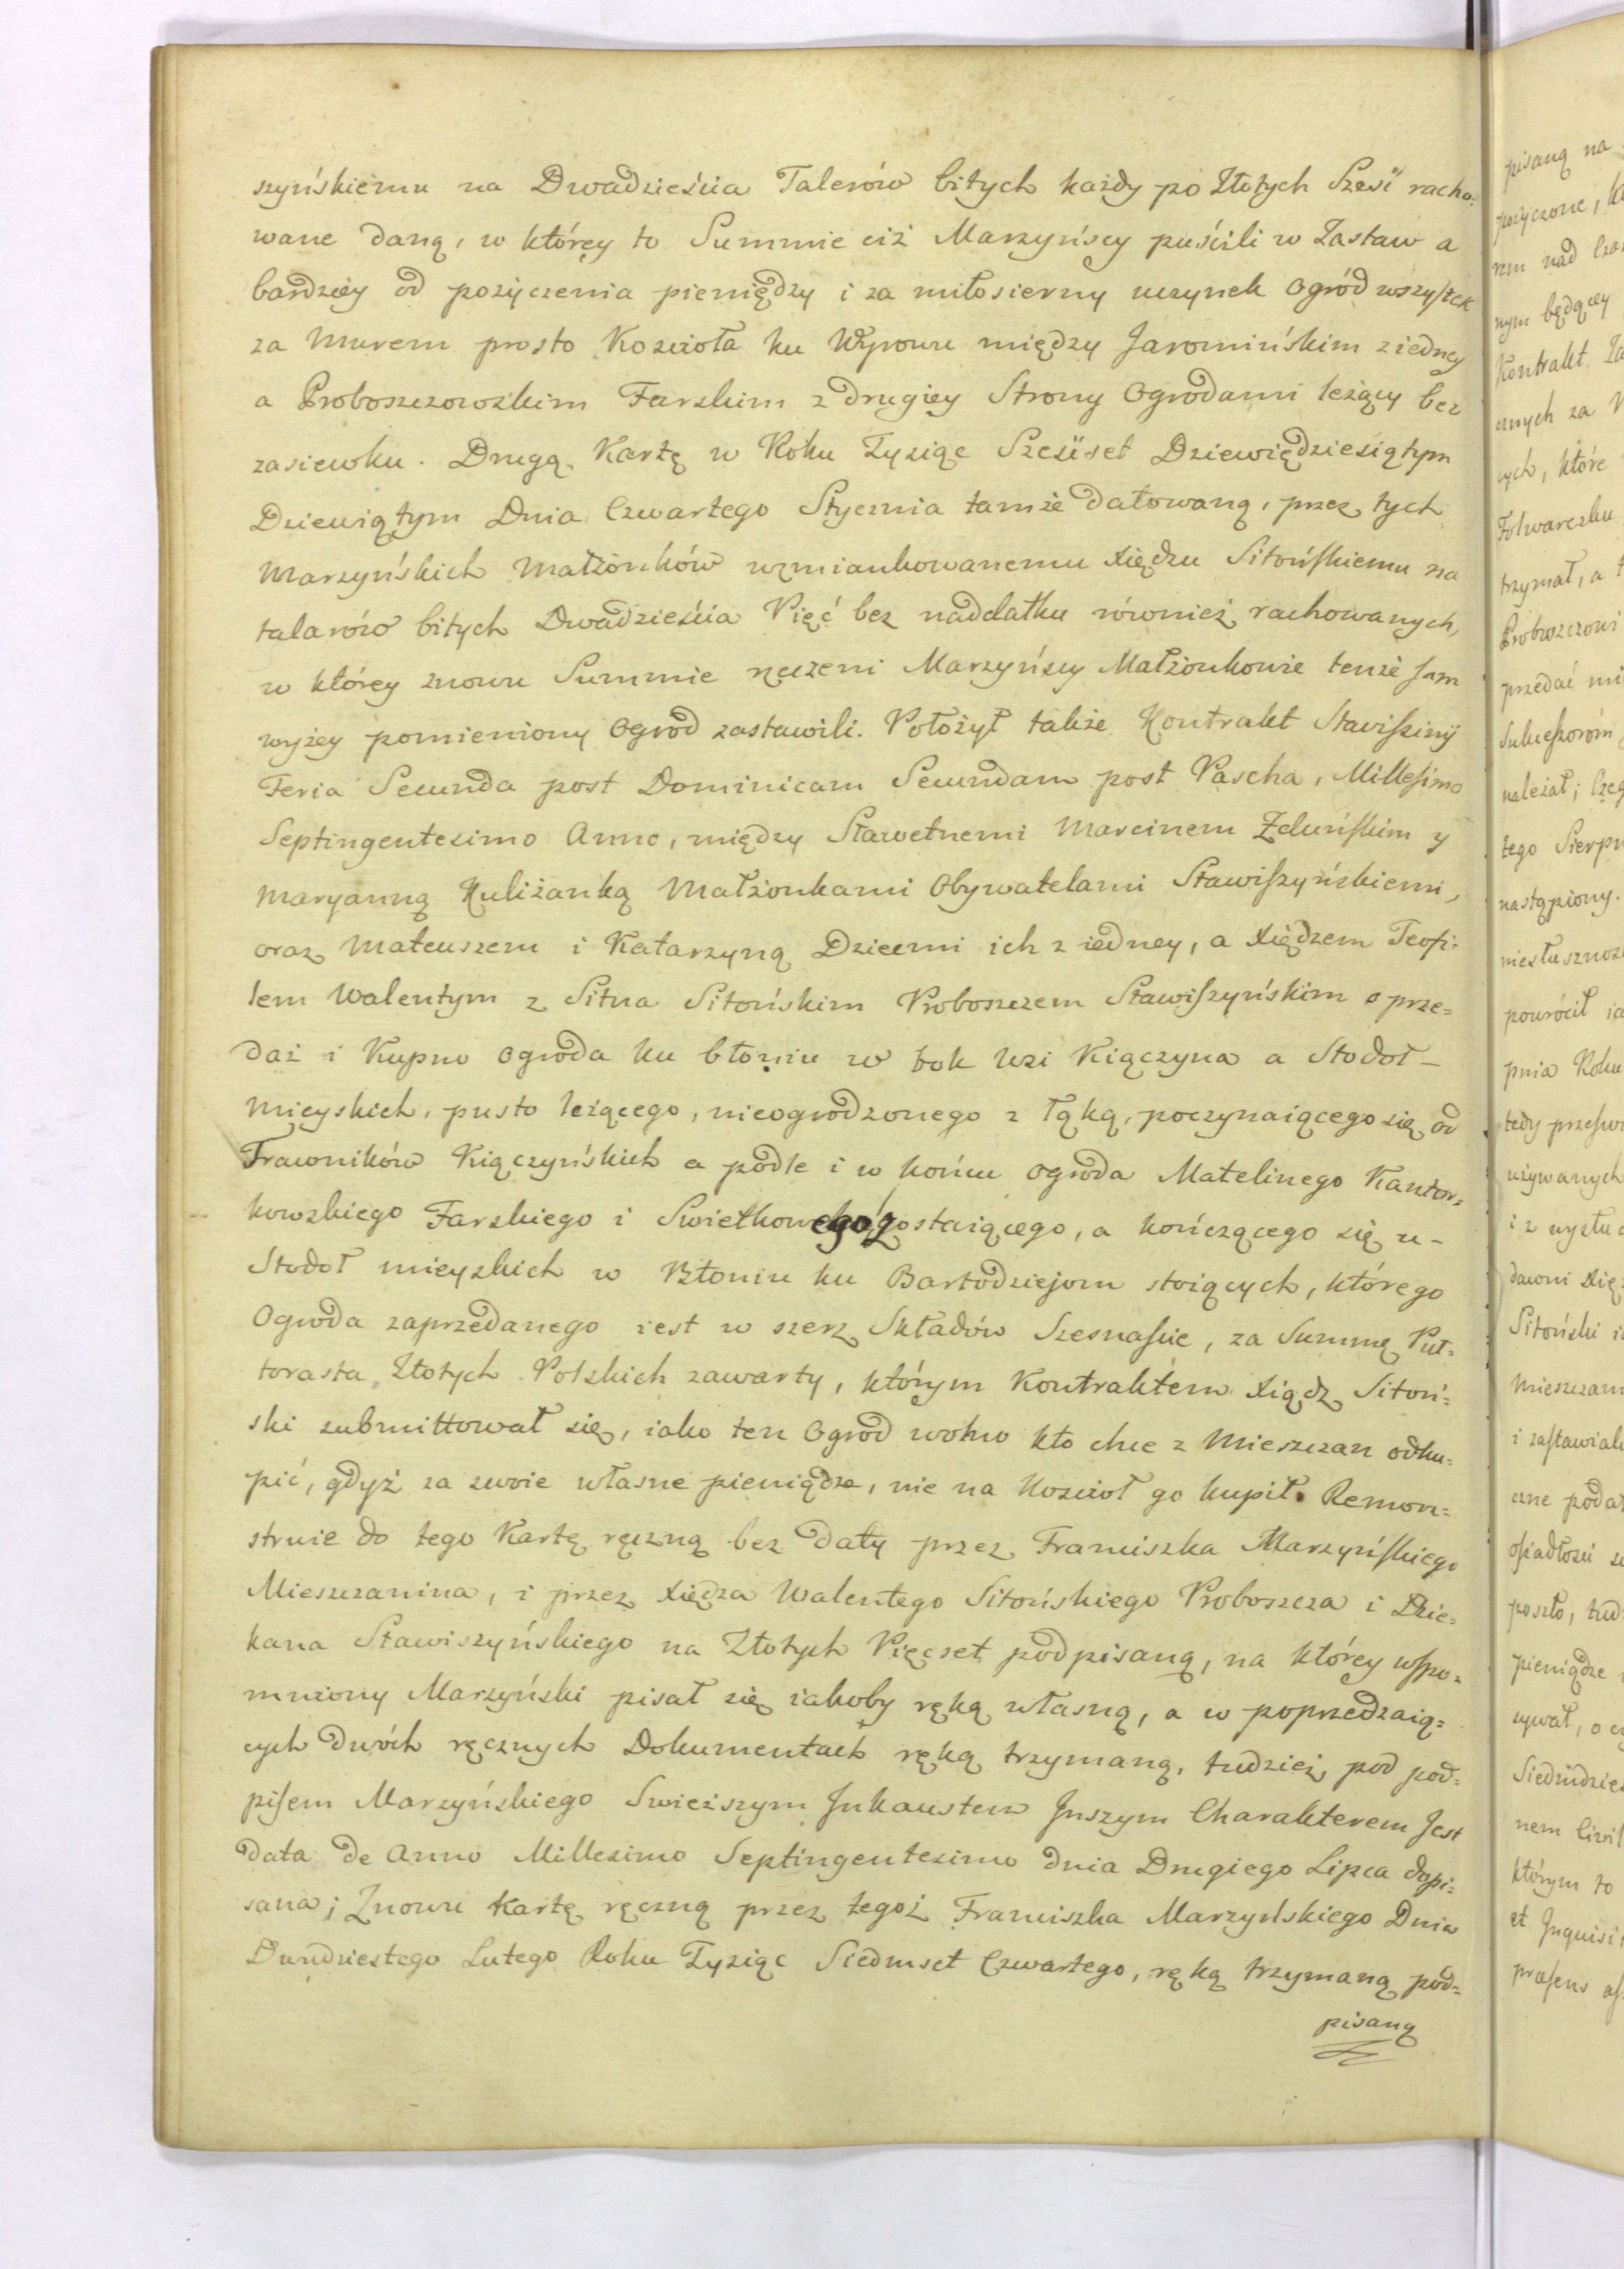 szyńskiemu na Dwadzieścia Talerów bitych każdy po Złotych Sześć racho-
wane daną, w którey to Summie ciż Marzyńscy puścili w Zastaw a
bardziey od pożyczenia pieniędzy i za miłosierny uczynek Ogród wszystek
za Murem prosto Kościoła ku Wyrowu między Jaromińskim z iedney
a Proboszczowskim Farskim z drugiey Strony Ogrodami leżący bez
zasiewku. Drugą Kartę w Roku Tysiąc Sześćset Dziewiędziesiątym
Dziewiątym Dnia Czwartego Stycznia tamże datowaną, przez tych
Marzyńskich Małżonków wzmiankowanemu Xiędzu Sitońskiemu na
talarów bitych Dwadzieścia Pięć bez naddatku również rachowanych,
w którey znowu Summie rzeczeni Marzyńscy Małżonkowie tenże sam
wyżey pomieniony Ogród zastawili. Położył także Kontrakt Stavissinÿ
Feria Secunda post Dominicam Secundam post Pascha, Millesimo
Septingentesimo Anno, między Sławetnemi Marcinem Zduńskim y
Maryanną Kuliżanką Małżonkami Obywatelami Stawiszyńskiemi,
oraz Mateuszem i Katarzyną Dziećmi ich z iedney, a Xiędzem Teofi=
lem Walentym z Sitna Sitońskim Proboszczem Stawiszyńskim o prze=
daż i Kupno Ogroda ku błoniu w bok Wsi Kiączyna a Stodoł -
Mieyskich, pusto leżącego, nieogrodzonego z łąką, poczynaiącego się od
Trawników Kiączyńskich a podle i w końcu Ogroda Matelinego Kantor=
kowskiego Farskiego i Swietkowego zostaiącego, a kończącego się u -
Stodoł mieyskich w Błoniu ku Bartodziejom stoiących, którego
Ogroda zaprzedanego iest w szerz Składów Szesnaście, za Summę Puł=
torasta Złotych Polskich zawarty, którym Kontraktem Xiądz Sitoń=
ski submittował się, iako ten Ogród wolno kto chce z Mieszczan odku=
pić, gdyż za swoie własne pieniądze, nie na Kościoł go kupił. Remon=
struie do tego Kartę ręczną bez daty przez Franciszka Marzyńskiego
Mieszczanina, i przez Xiędza Walentego Sitońskiego Proboszcza i Dzie=
kana Stawiszyńskiego na Złotych Pięćset podpisaną, na którey wspo=
mniony Marzyński pisał się iakoby ręką własną, a w poprzedzaią=
cych dwóch ręcznych Dokumentach ręką trzymaną, tudzież pod pod=
pisem Marzyńskiego Swieższym Inkaustem Inszym Charakterem Jest
data de Anno Millesimo Septingentesimo dnia Drugiego Lipca dopi=
sana; Znowu kartę ręczną przez tegoż Franciszka Marzyńskiego Dnia
Dwudziestego Lutego Roku Tysiąc Siedmset Czwartego, ręką trzymaną pod=
pisaną
pisaną na
pożyczone,
rem nad
nym będący
Kontrakt
cznych za
tych, które
Folwarczku
trzymał, a
Proboszczowi
przedać
Sukcessorom
należał;
tego Sierpn
nastąpiony.
powrócił
pnia Roku
tedy
używanych
i z wysłu
Sitoński
Mieszczan
i zastawiali
czne
poszło, tud
pieniądze
Siedmdzies
nem
którym to
et Inquisi
præsens